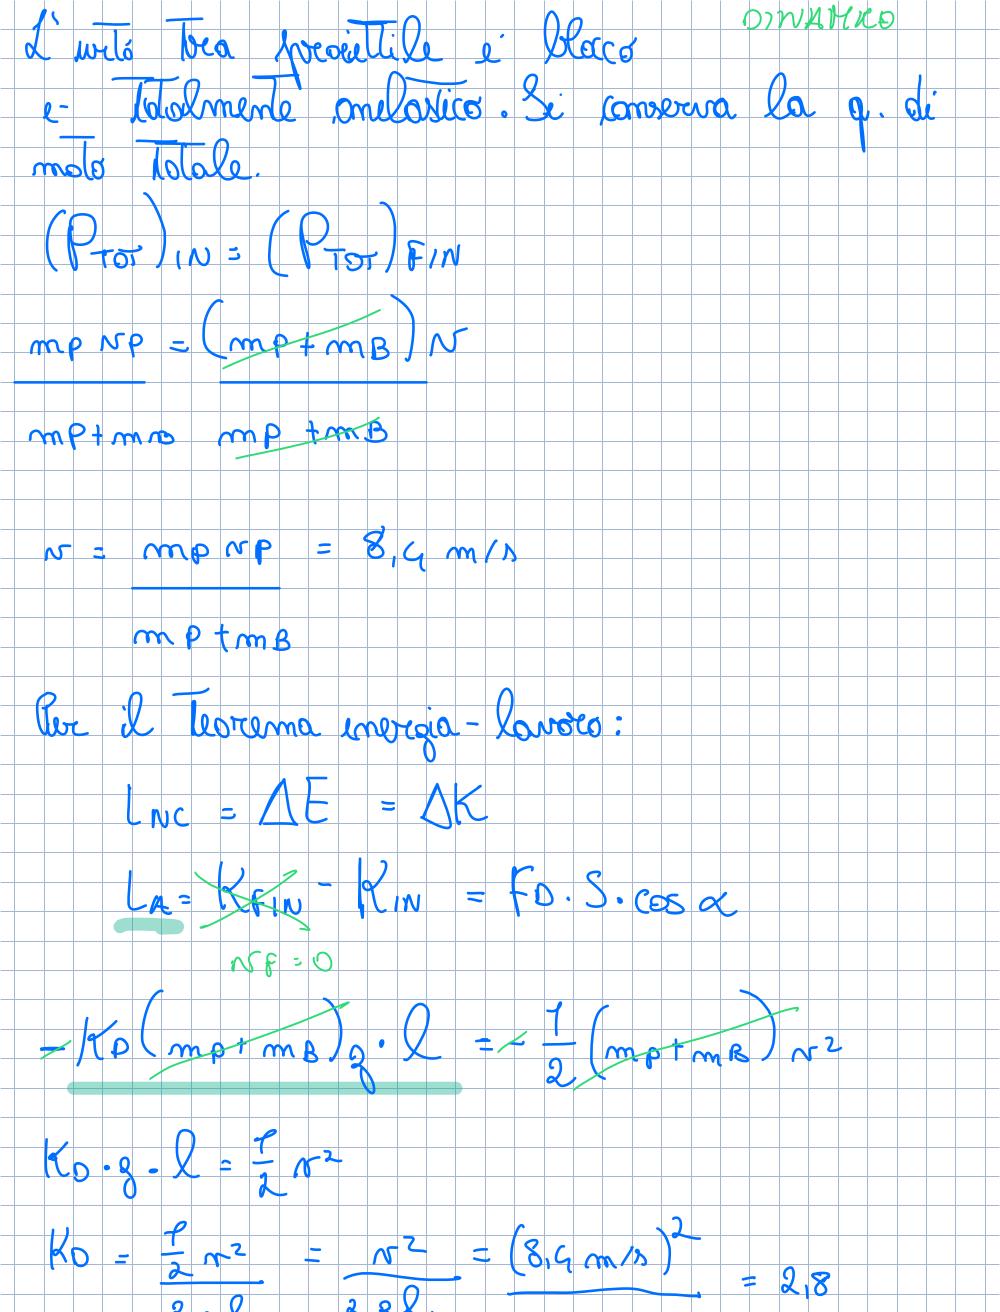 DINAMICO
L'urto tra proiettile e blocco
e- totalmente anelastico. Si conserva la q. di
moto totale.
(P_TOT)_IN = (P_TOT)_FIN
mP vP = (mP + mB) v
mP + mB   mP + mB
v = mP vP = 8,4 m/s
mP + mB
Per il Teorema energia-lavoro:
L_NC = ΔE = ΔK
L_A = K_FIN - K_IN = F_D · S · cos α
vf = 0
- K_D (mP + mB) g · l = - 1/2 (mP + mB) v²
K_D · g · l = 1/2 v²
K_D = 1/2 v² = v² = (8,4 m/s)² = 2,8